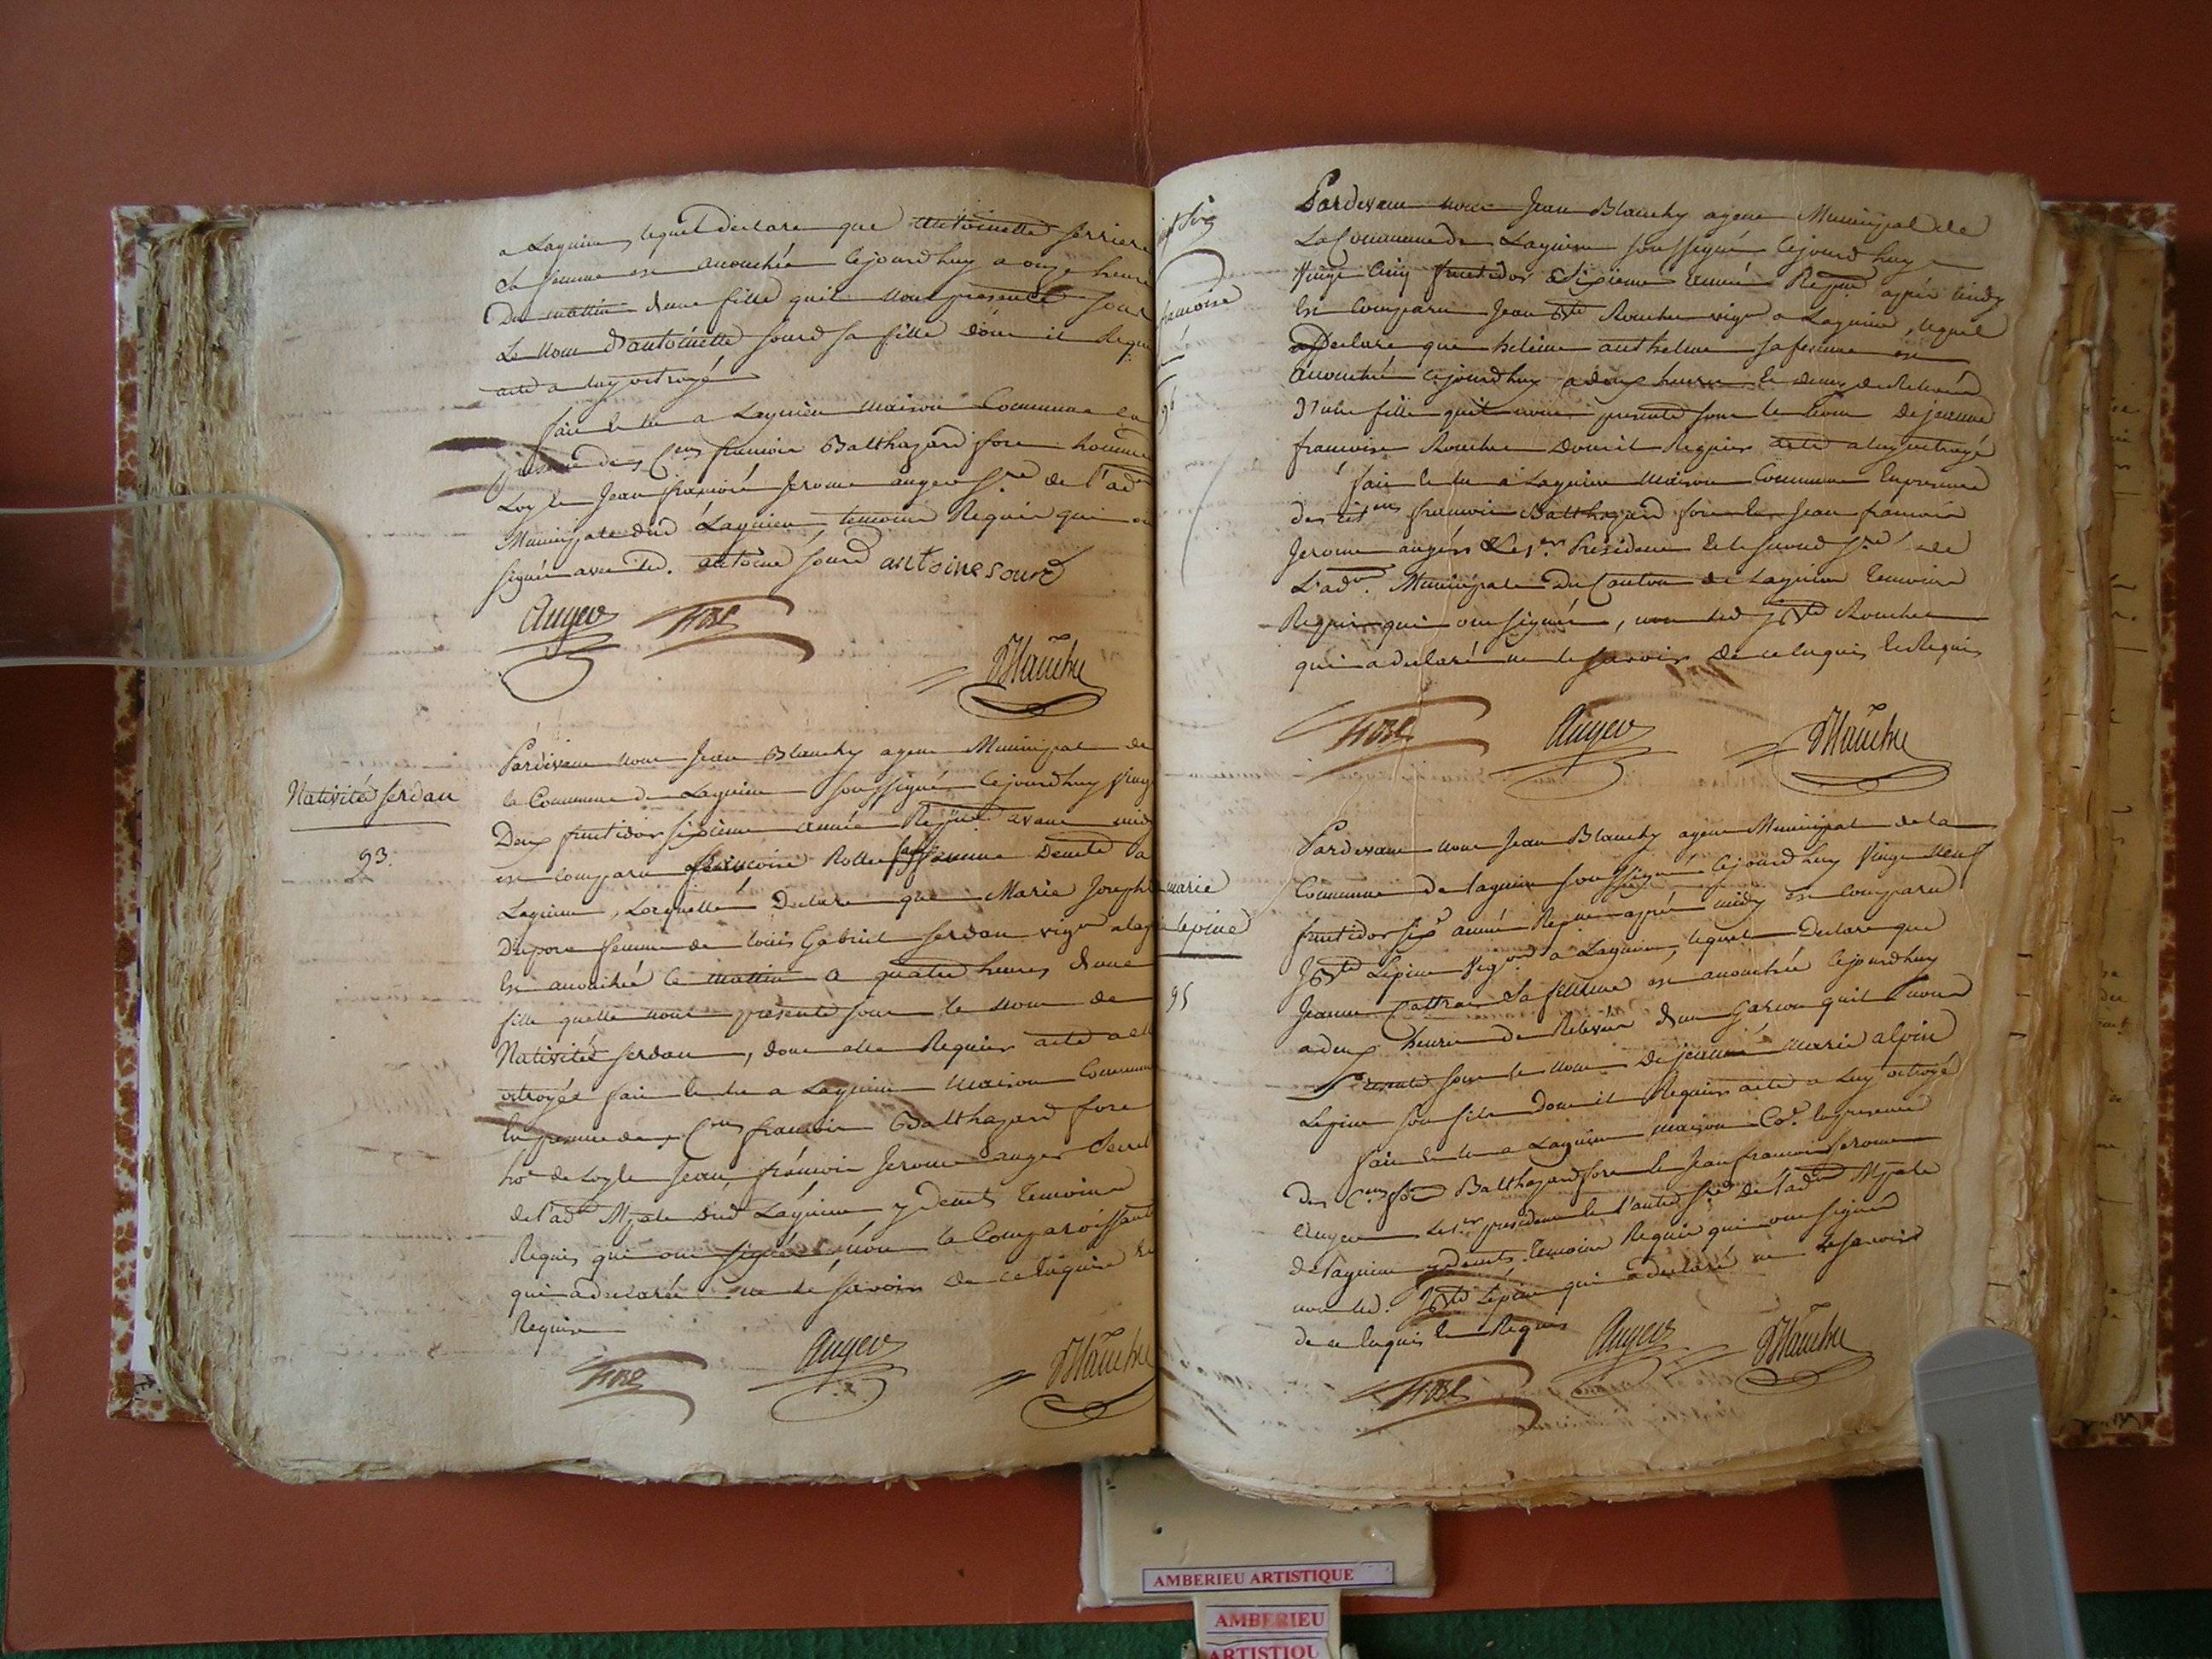 a Lagnieu, lequel declare que antoinette ferriere
sa femme est accouchée cejourdhuy a onze heure
Du mattin d'une fille quil nous presente sous
Le nom d'antoinette sourd sa fille dont il Requ
acte a luy octroyé
fait et lu a Lagnieu maison Commune en
presence des Cens francois Balthazard fore homme
Loy et Jean francois Jerome auger sre de l'adon
Municipale dud Lagnieu, temoins Requis qui on
signé avec led. antoine sourd antoine sourd
Auger fore
Blanchy
Nativité serdan
93.
Pardevant nous Jean Blanchy agent Municipal de
la Commune de Lagnieu soussigné cejourdhuy Vingt
Deux fructidor sixieme année Republ. avant midy
est comparu francoise Rollet sage femme Demte a
Lagnieu, Laquelle Declare que Marie Josephe
Dupora femme de Louis Gabriel serdan vign a lag
est accouchée ce mattin a quatre heures d'une
fille quelle nous presente sous le nom de
Nativité serdan, dont elle Requier acte a ell
octroyé fait et lu a Lagnieu maison Commune
En presence des Cens francois Balthazard fore
hoe de Loy et Jean francois Jerome auger Secret
de l'adon Mpale dud Lagnieu y demts Temoins
Requis qui ont signés, non la Comparoissante
qui a declaré ne le savoir de ce enquise et
Requise
fore Auger Blanchy
francoise
94
Pardevant nous Jean Blanchy agent Municipal de
La Commune de Lagnieu soussigné cejourdhuy
Vingt Cinq fructidor Sixieme année Repne après midy
Est Comparu Jean Bte Roucher vign a Lagnieu, lequel
Declare que heleine anthelme sa femme est
accouchée cejourdhuy a deux heures de Relevée
D'une fille quil nous presente sous le nom de jeanne
francoise Roucher Dont il Requier acte a luy octroyé
fait et lu a Lagnieu maison Commune En presence
des citens francois Balthazard fore et Jean francois
Jerome auger Le 1er President et le second sre de
L'adon Municipale Du Canton de Lagnieu Temoins
Requis qui ont signés, non led J Bte Roucher
qui a declaré ne le savoir de ce enquis et Requis
fore Auger Blanchy
marie
lepine
95
Pardevant nous Jean Blanchy agent Municipal de la
Commune de lagnieu soussigné Cejourdhuy Vingt neuf
fructidor six année Repne après midy est Comparu
J Bte Lepine Vigon a Lagnieu, lequel Declare que
Jeanne Cattrai Sa femme est accouchée Cejourdhuy
a deux heures de Relevée d'un Garcon quil nous
Presente sous le nom De jeanne marie alpin
Lepine son fils Dont il Requier acte a Luy octroyé
fait et lu a Lagnieu maison Coe En presence
des Cens fois Balthazard fore et Jean francois Jerome
Auger Le 1er president et l'autre sre de l'adon Mpale
de lagnieu y demts Temoins Requis qui ont signés
non led. J Bte Lepine qui a declaré ne le savoir
de ce Enquis et Requis
fore Auger Blanchy
AMBERIEU ARTISTIQUE
AMBERIEU
ARTISTIQU